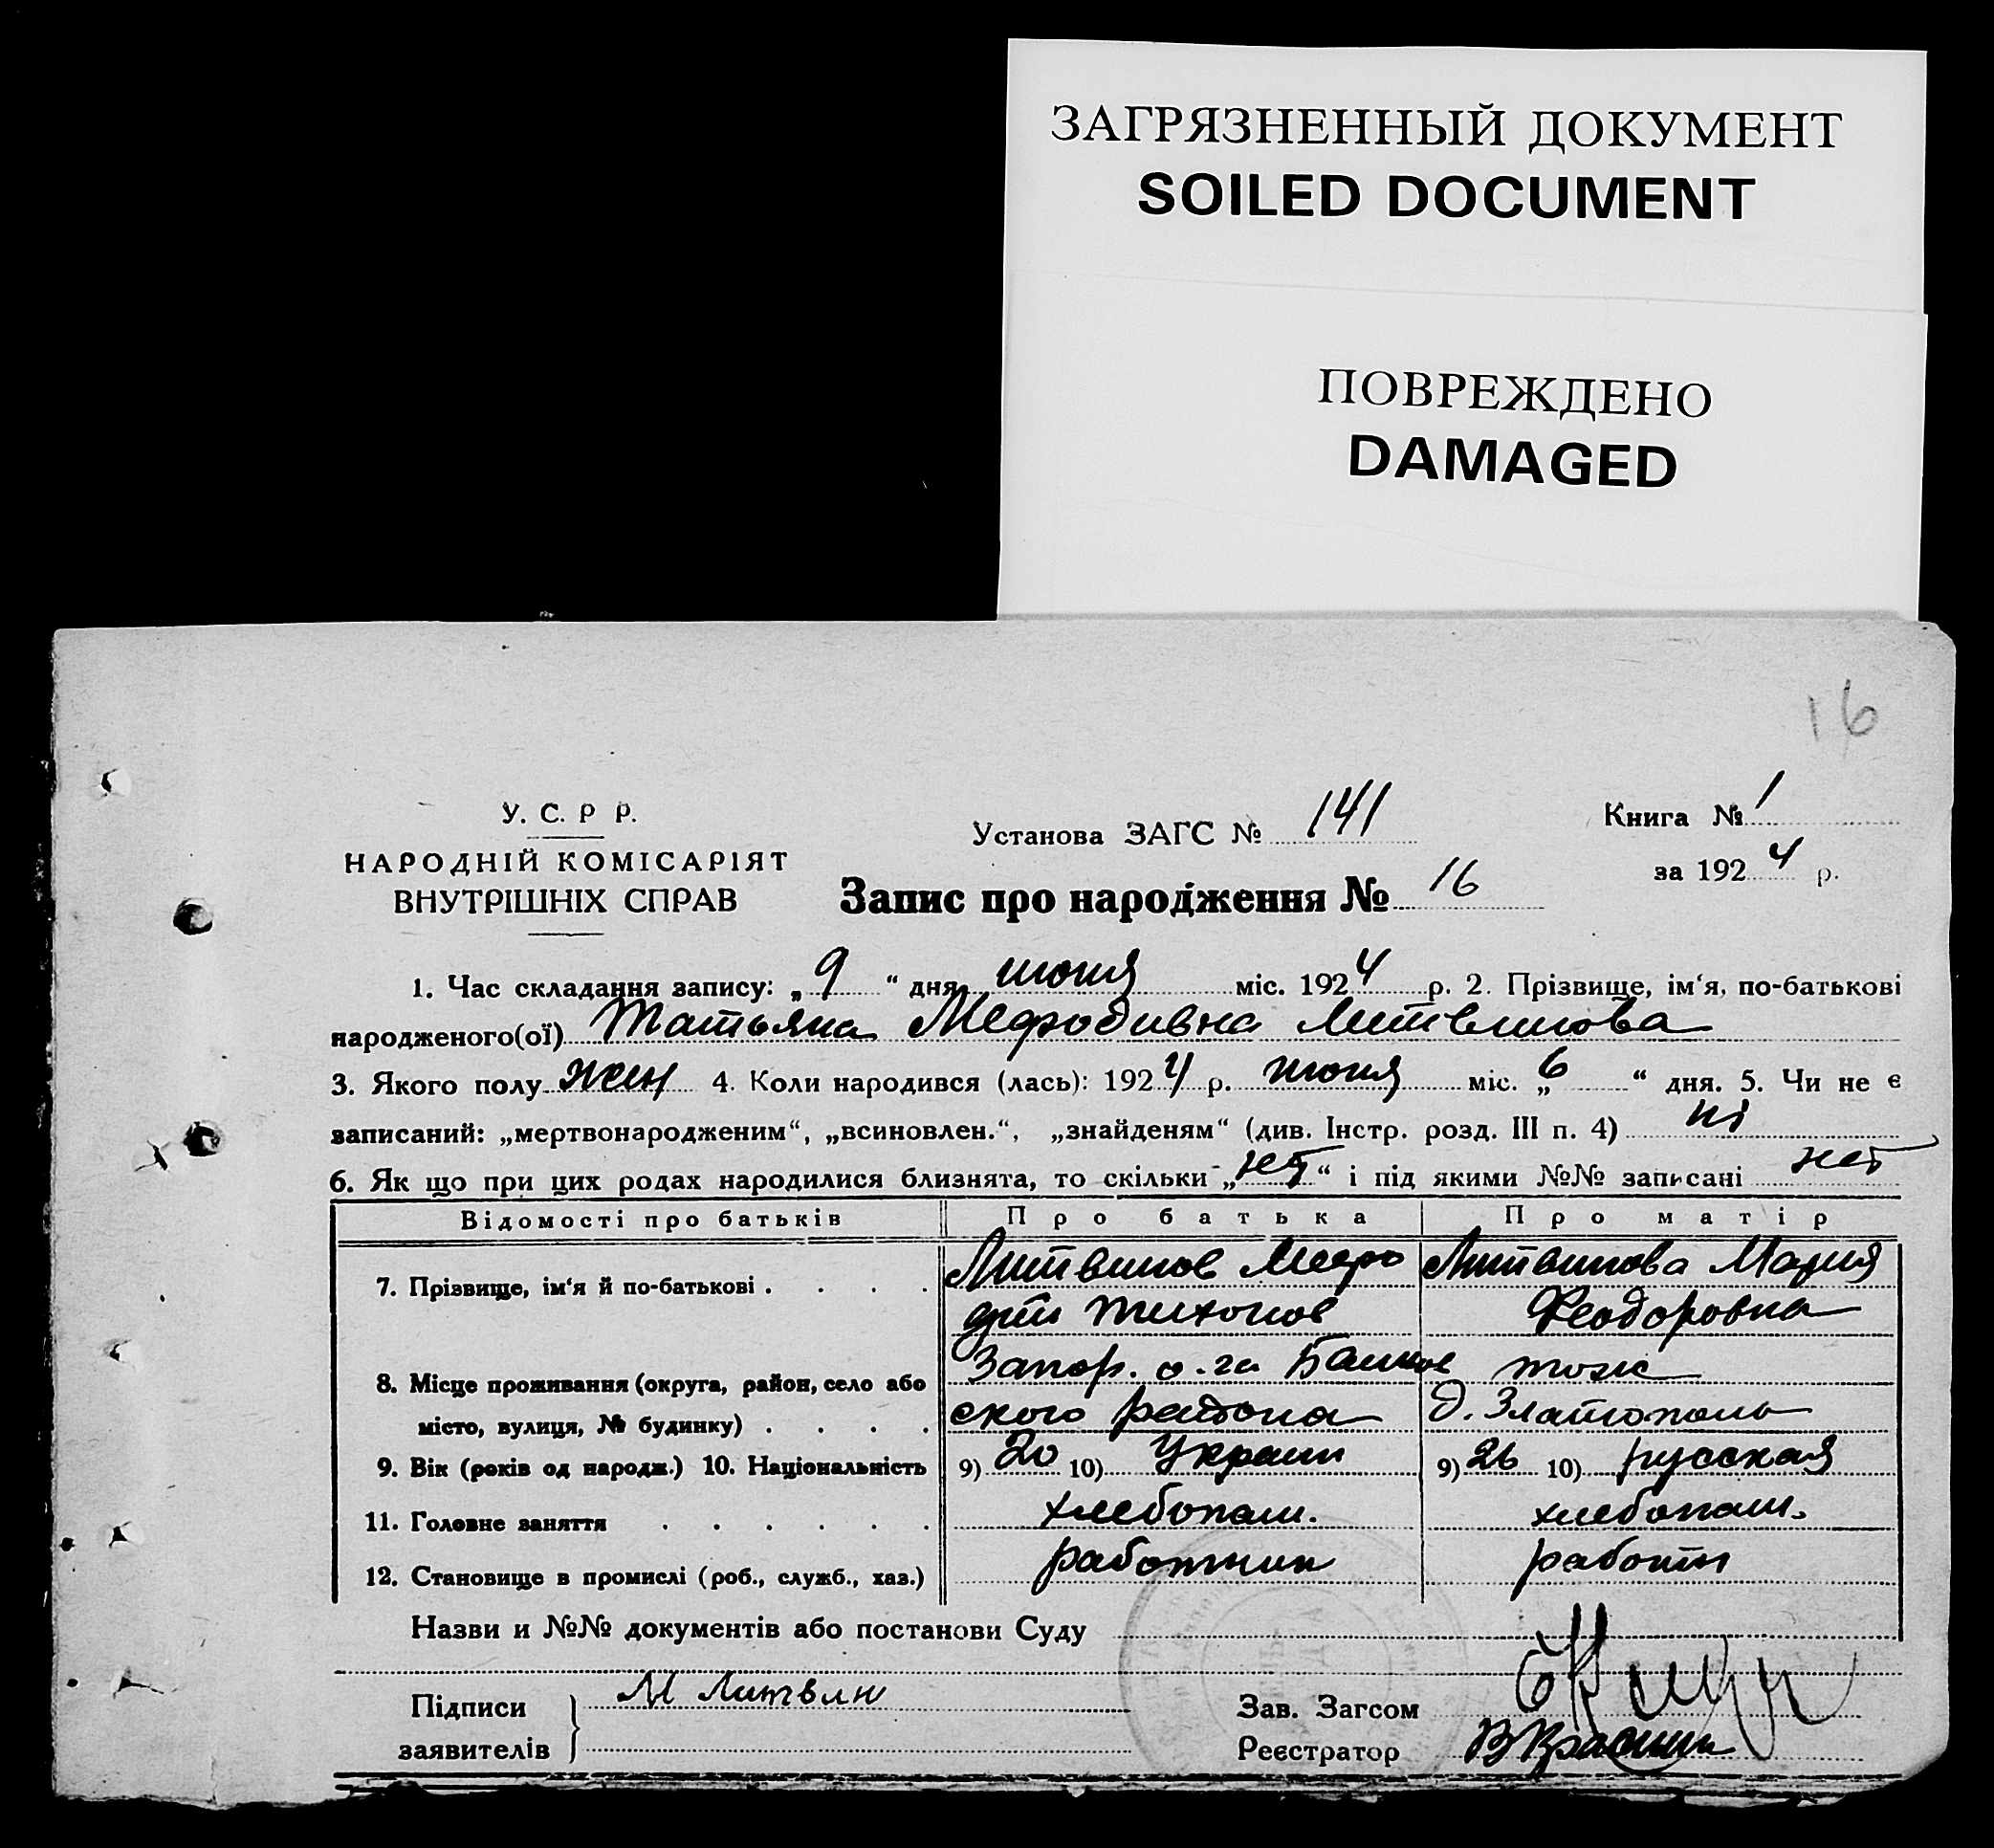 ЗАГРЯЗНЕННЫЙ ДОКУМЕНТ
SOILED DOCUMENT
ПОВРЕЖДЕНО
DAMAGED
16
У. С. Р Р.
НАРОДНІЙ КОМІСАРІЯТ
ВНУТРІШНІХ СПРАВ
Установа ЗАГС № 141
Книга № 1
за 1924 р.
Запис про народження № 16
1. Час складання запису: „9“ дня июня міс. 1924 р. 2. Прізвище, ім‘я, по-батькові
народженого(ої) Татьяна Мефодивна Литвинова
3. Якого полу жен 4. Коли народився (лась): 1924 р. июня міс. „6“ дня. 5. Чи не є
записаний: „мертвонародженим“, „всиновлен.“, „знайденям“ (див. Інстр. розд. III п. 4) ні
6. Як що при цих родах народилися близнята, то скільки „нет“ і під якими №№ записані нет
Відомості про батьків Про батька Про матір
7. Прізвище, ім‘я й по-батькові . . . . Литвинов Мефо Литвинова Мария
дий Тихонов Феодоровна
8. Місце проживання (округа, район, село або Запор. о-га тож
місто, вулиця, № будинку) . . . . ского района д. Златополь
9. Вік (років од народж.) 10. Національність 9) 20 10) Украин 9) 26 10) русская
11. Головне заняття . . . . . . хлебопаш. хлебопаш.
12. Становище в промислі (роб., служб., хаз.) работник работн
Назви и №№ документів або постанови Суду
Підписи М Литвин Зав. Загсом
заявителів Реєстратор